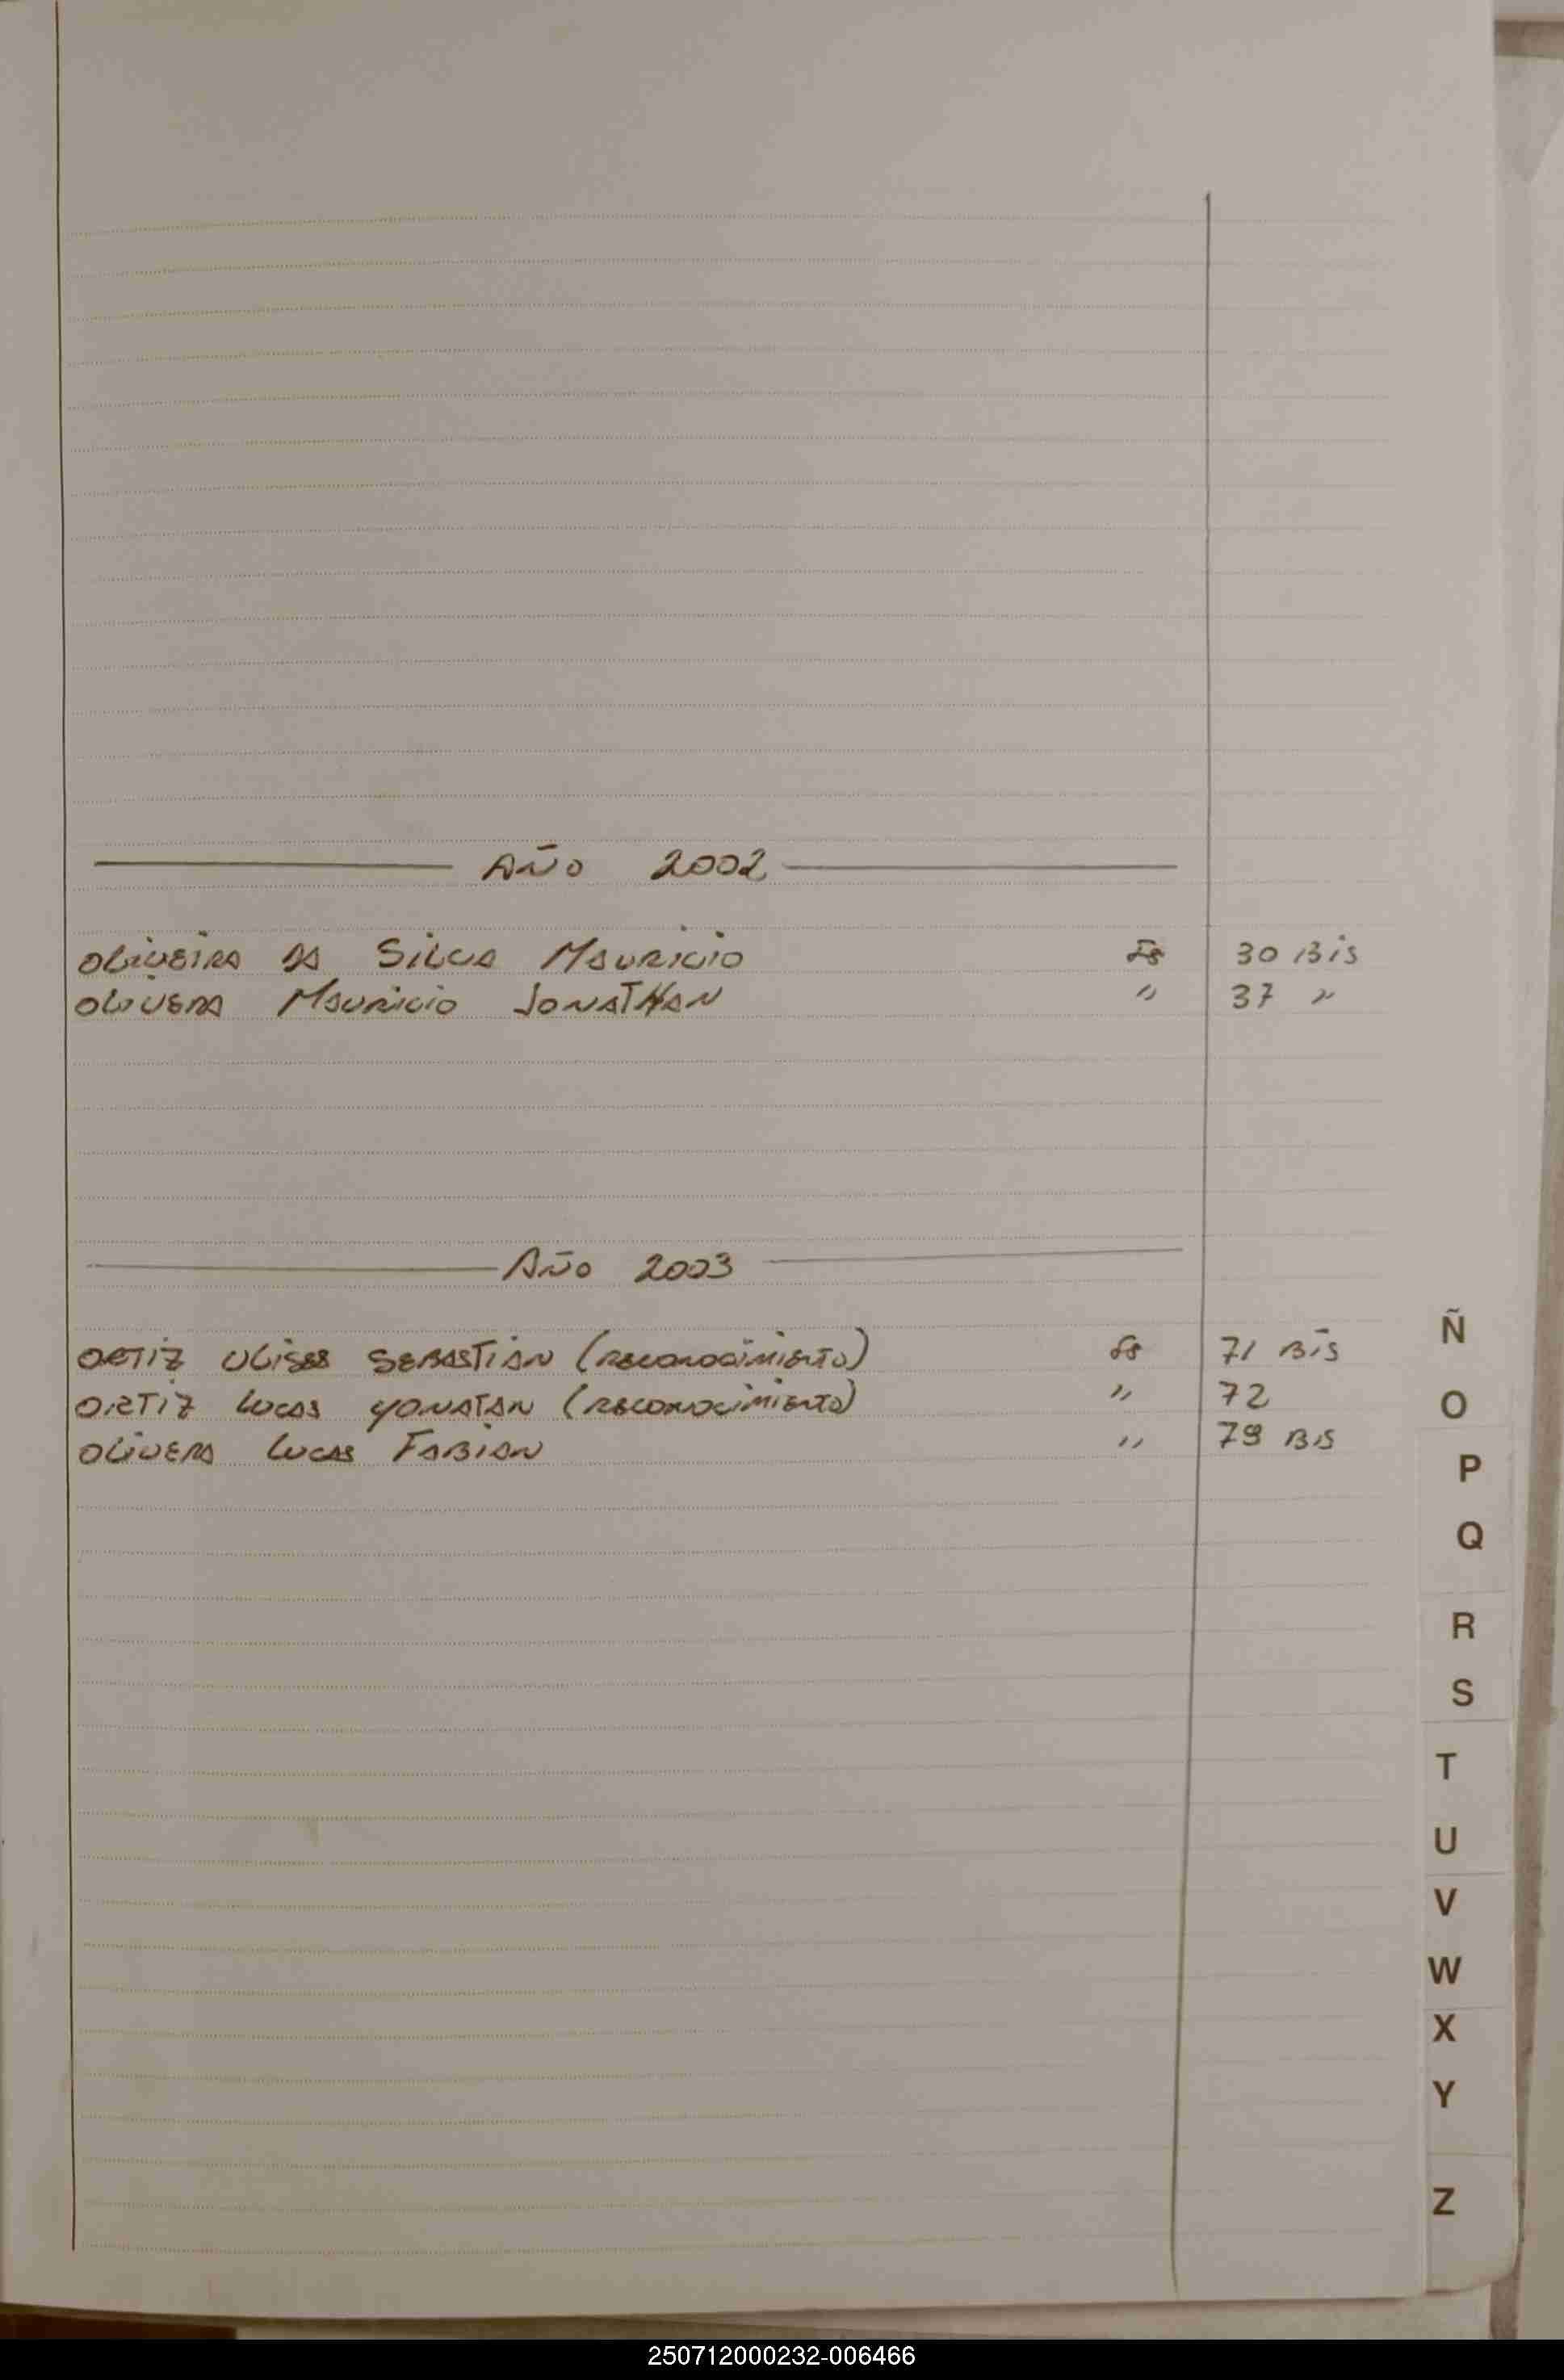 Año 2002
Oliveira da Silva Mauricio Fs 30 Bis
Olivera Mauricio Jonathan " 37 "
Año 2003
Ortiz Ulises Sebastian (reconocimiento) Fs 71 Bis
Ortiz Lucas Yonatan (reconocimiento) " 72
Olivera Lucas Fabian " 79 Bis
Ñ
O
P
Q
R
S
T
U
V
W
X
Y
Z
250712000232-006466